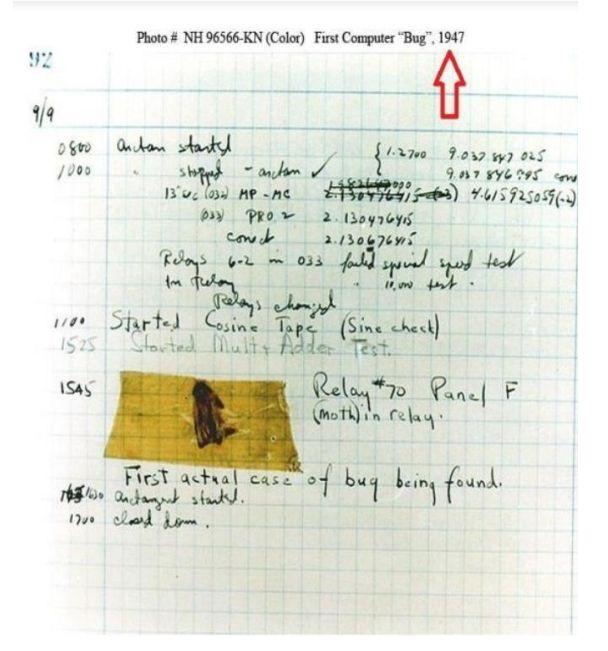 Photo # NH 96566-KN (Color) First Computer “Bug”, 1947
92
9/9
0800 antan started
1000 " stopped - antan ✓ { 1.2700 9.037 847 025
9.037 846 995 conv
13" uc (032) MP - MC 2.130476415 (-3) 4.615925059(-2)
(033) PRO 2 2.130476415
conv 2.130676415
Relays 6-2 in 033 failed special speed test
in Relay " 10,000 test.
Relays changed
1100 Started Cosine Tape (Sine check)
1525 Started Mult + Adder Test.
1545 Relay #70 Panel F
(moth) in relay.
First actual case of bug being found.
1630 antangent started.
1700 closed down.